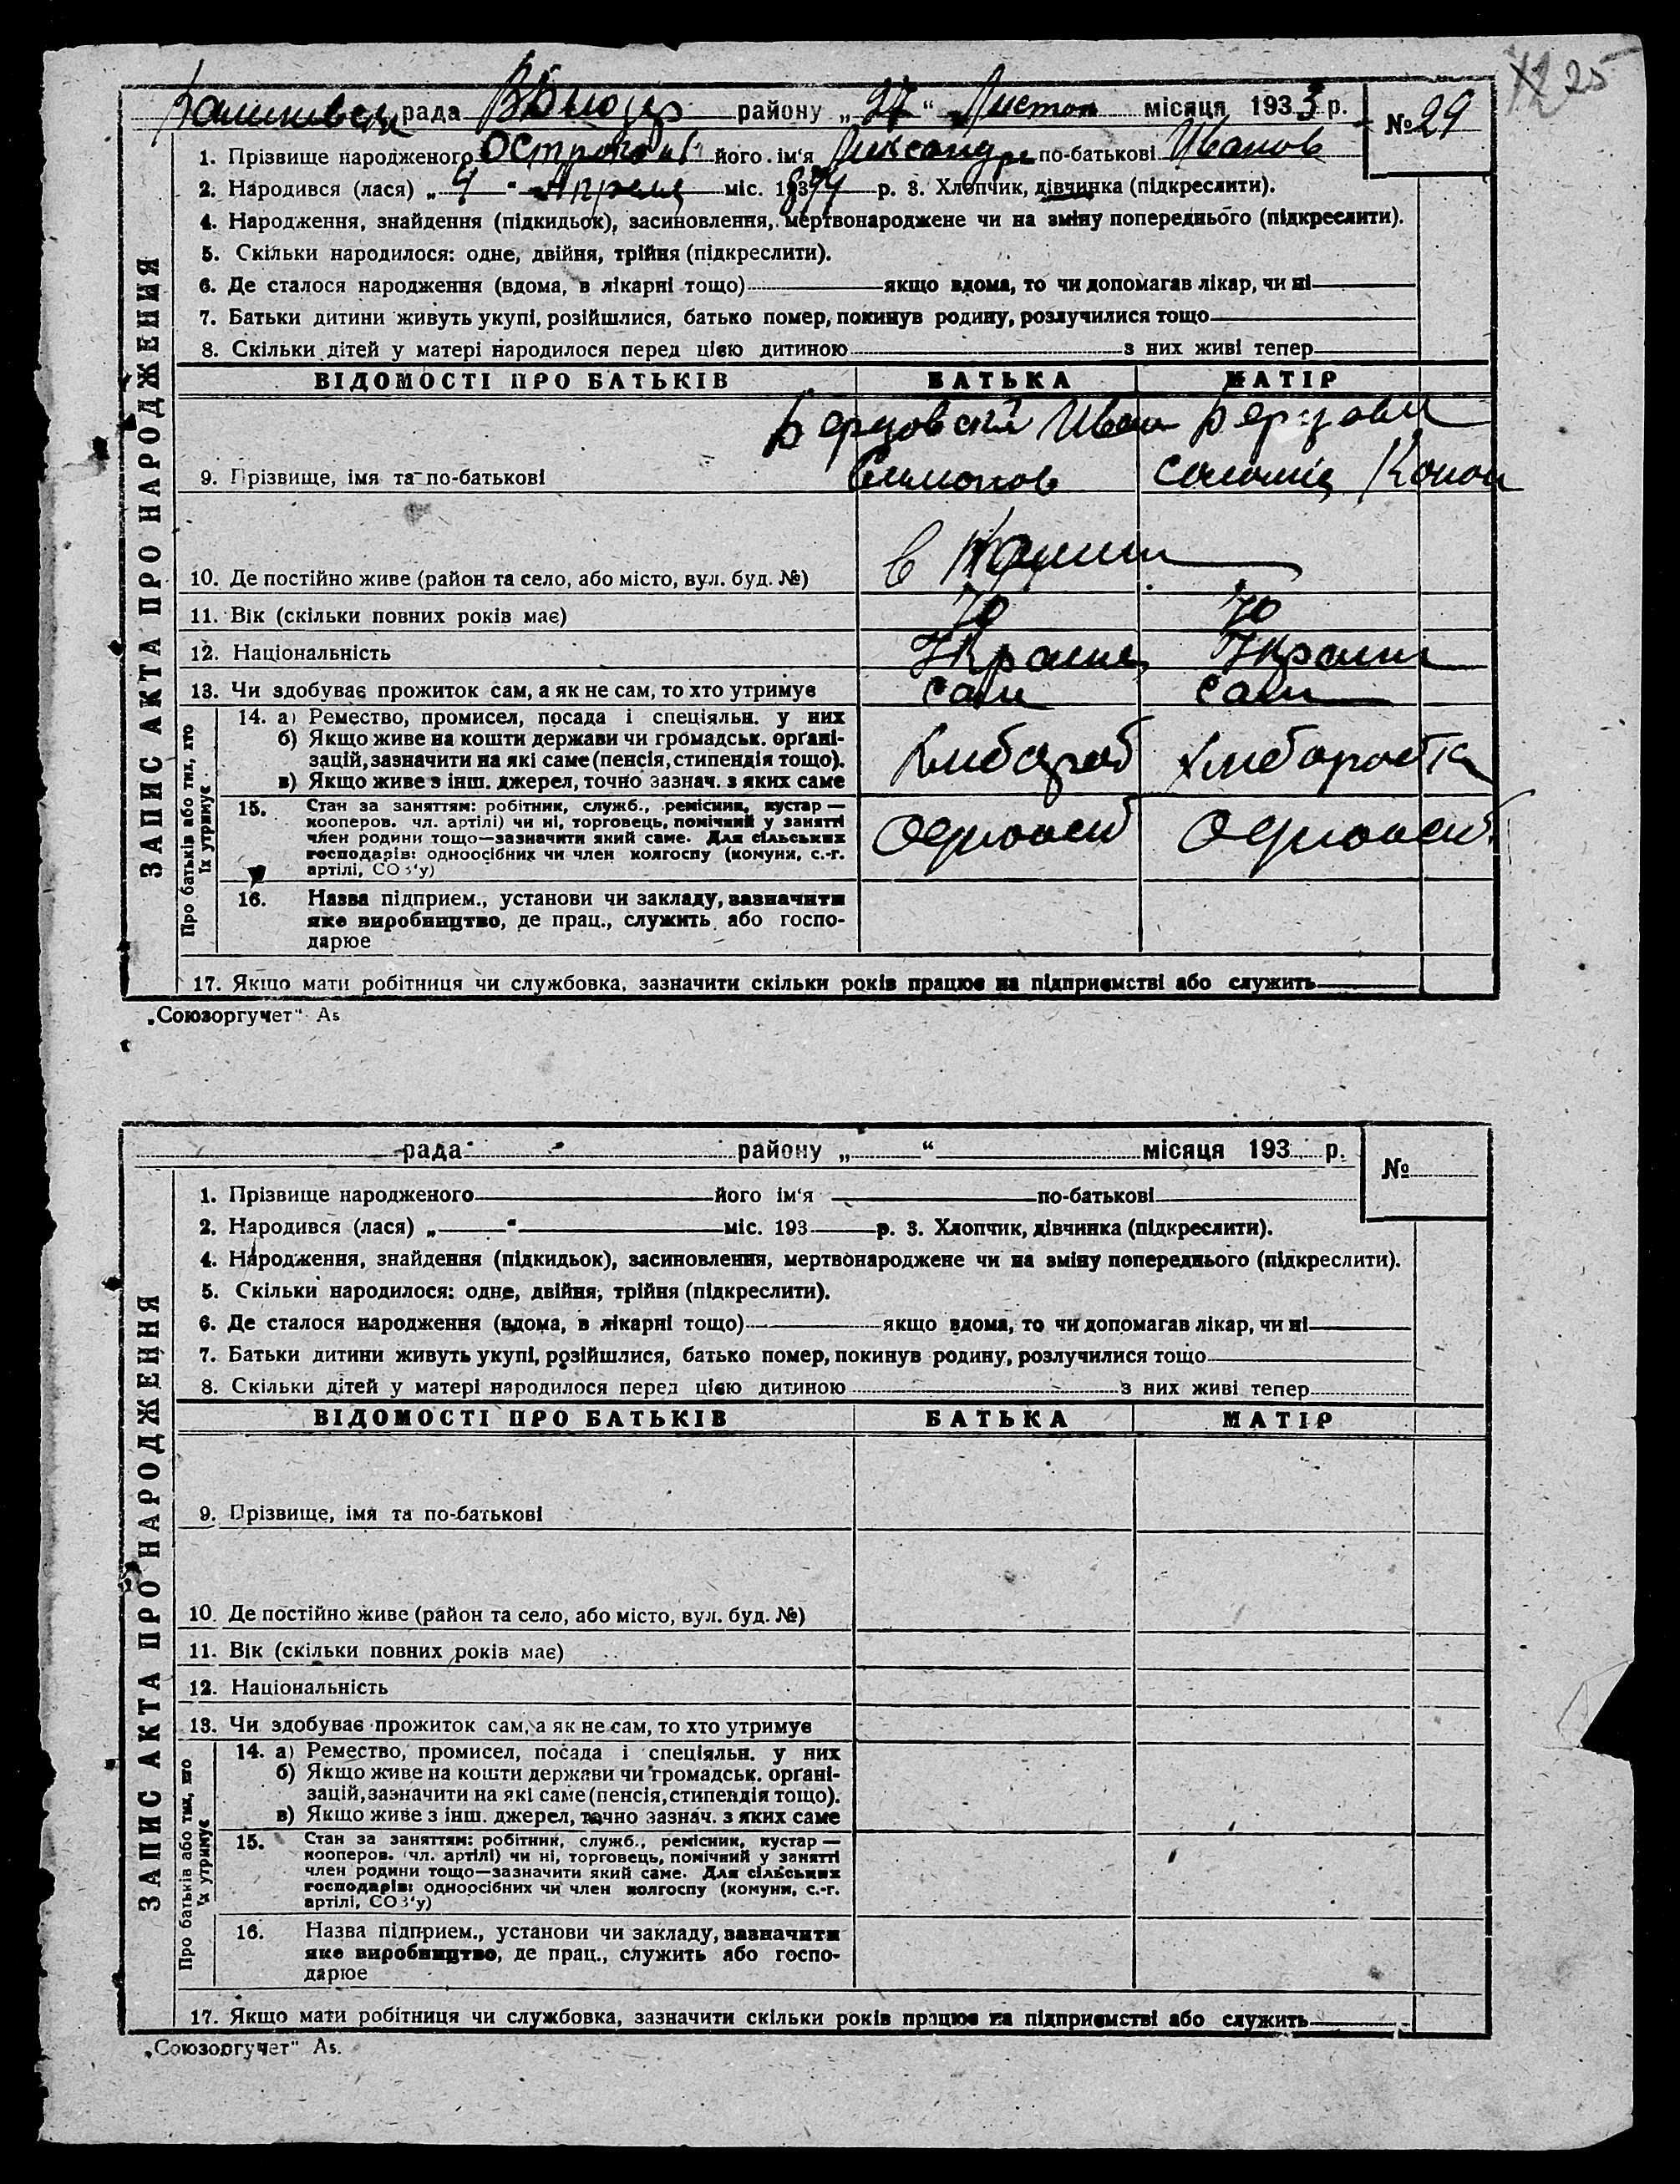 12 25
рада району „27“ Листоп місяця 1933 р. № 29
1. Прізвище народженого його ім'я Александра по-батькові Иванов
2. Народився (лася) „4“ Апреля міс. 1894 р. 3. Хлопчик, дівчинка (підкреслити).
4. Народження, знайдення (підкидьок), засиновлення, мертвонароджене чи на зміну попереднього (підкреслити).
5. Скільки народилося: одне, двійня, трійня (підкреслити).
6. Де сталося народження (вдома, в лікарні тощо) якщо вдома, то чи допомагав лікар, чи ні
7. Батьки дитини живуть укупі, розійшлися, батько помер, покинув родину, розлучилися тощо
8. Скільки дітей у матері народилося перед цією дитиною з них живі тепер
ВІДОМОСТІ ПРО БАТЬКІВ БАТЬКА МАТІР
Иван
9. Прізвище, імя та по-батькові Конон
10. Де постійно живе (район та село, або місто, вул. буд. №) в
11. Вік (скільки повних років має) 70 70
12. Національність Украине Украин
13. Чи здобуває прожиток сам, а як не сам, то хто утримує сам сам
14. а) Ремество, промисел, посада і спеціяльн. у них
б) Якщо живе на кошти держави чи громадськ. органі-
зацій, зазначити на які саме (пенсія, стипендія тощо).
в) Якщо живе з інш. джерел, точно зазнач. з яких саме
15. Стан за заняттям: робітник, служб., ремісник, кустар —
кооперов. чл. артілі) чи ні, торговець, помічний у занятті
член родини тощо—зазначити який саме. Для сільських
господарів: одноосібних чи член колгоспу (комуни, с.-г.
артілі, СОЗ'у)
16. Назва підприєм., установи чи закладу, зазначити
яке виробництво, де прац., служить або госпо-
дарює
17. Якщо мати робітниця чи службовка, зазначити скільки років працює на підприємстві або служить
ЗАПИС АКТА ПРО НАРОДЖЕННЯ
Про батьків або тих, хто
їх утримує
„Союзоргучет“ А5
рада району „ “ місяця 193 р. №
1. Прізвище народженого його ім'я по-батькові
2. Народився (лася) „ “ міс. 193 р. 3. Хлопчик, дівчинка (підкреслити).
4. Народження, знайдення (підкидьок), засиновлення, мертвонароджене чи на зміну попереднього (підкреслити).
5. Скільки народилося: одне, двійня, трійня (підкреслити).
6. Де сталося народження (вдома, в лікарні тощо) якщо вдома, то чи допомагав лікар, чи ні
7. Батьки дитини живуть укупі, розійшлися, батько помер, покинув родину, розлучилися тощо
8. Скільки дітей у матері народилося перед цією дитиною з них живі тепер
ВІДОМОСТІ ПРО БАТЬКІВ БАТЬКА МАТІР
9. Прізвище, імя та по-батькові
10. Де постійно живе (район та село, або місто, вул. буд. №)
11. Вік (скільки повних років має)
12. Національність
13. Чи здобуває прожиток сам, а як не сам, то хто утримує
14. а) Ремество, промисел, посада і спеціяльн. у них
б) Якщо живе на кошти держави чи громадськ. органі-
зацій, зазначити на які саме (пенсія, стипендія тощо).
в) Якщо живе з інш. джерел, точно зазнач. з яких саме
15. Стан за заняттям: робітник, служб., ремісник, кустар —
кооперов. чл. артілі) чи ні, торговець, помічний у занятті
член родини тощо—зазначити який саме. Для сільських
господарів: одноосібних чи член колгоспу (комуни, с.-г.
артілі, СОЗ'у)
16. Назва підприєм., установи чи закладу, зазначити
яке виробництво, де прац., служить або госпо-
дарює
17. Якщо мати робітниця чи службовка, зазначити скільки років працює на підприємстві або служить
ЗАПИС АКТА ПРО НАРОДЖЕННЯ
Про батьків або тих, хто
їх утримує
„Союзоргучет“ А5.